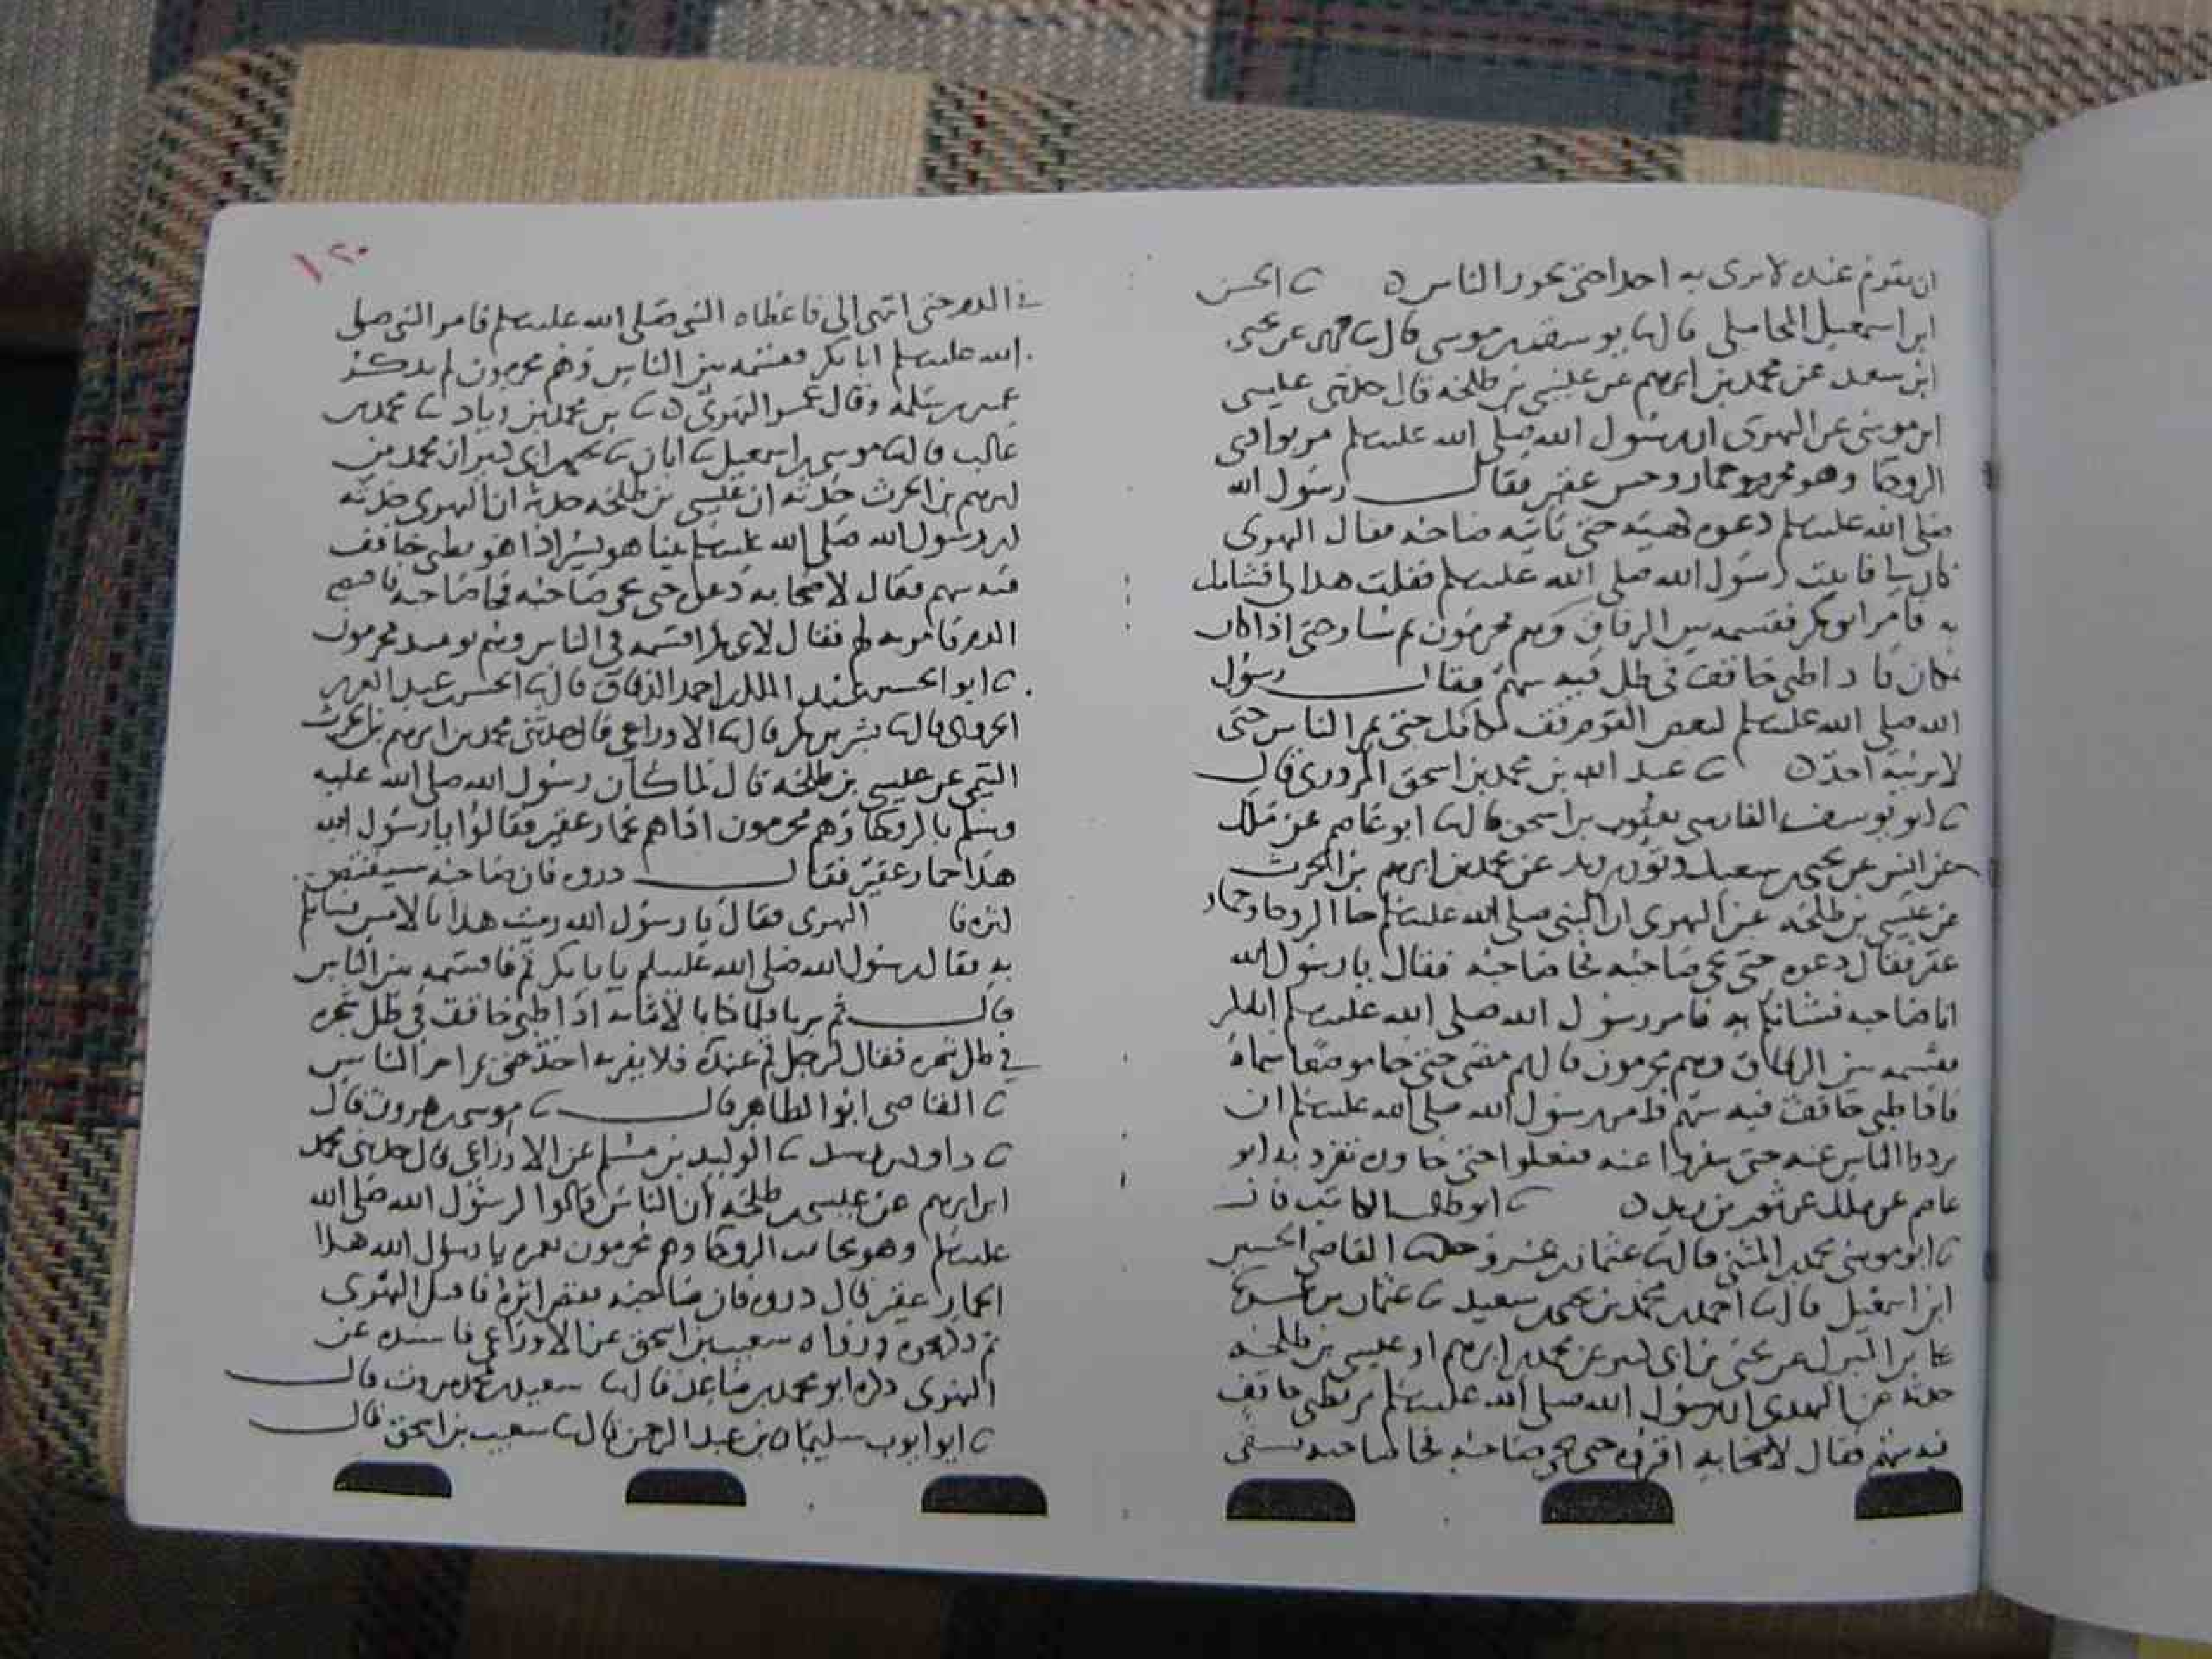 ان يقوم عنده لا يرى به احدا حتى يجوز الناس ٥ ثنا الحسين
ابن اسمعيل المحاملي قال ثنا يوسف بن موسى قال ثنا جرير عن يحيى
ابن سعيد عن محمد بن ابرهيم عن عيسى بن طلحة قال حدثني عيسى
ابن موسى عن البهزي ان رسول الله صلى الله عليه وسلم مر بوادي
الروحا وهو محرم حمار وحش عقير فقال رسول الله
صلى الله عليه وسلم دعوه حتى ياتيه صاحبه فقال البهزي
رسول الله صلى الله عليه وسلم فقلت هذا لي فشانك
به فامر ابو بكر فقسمه بين الرفاق وهم محرمون ثم سار حتى اذا كان
ظبي حاقف في ظل فيه سهم فقال رسول
الله صلى الله عليه وسلم لبعض القوم قف مكانك حتى يمر الناس حتى
لا يريبه احد ٥ ثنا عبد الله بن محمد بن اسحق المروزي قال
ثنا ابو يوسف الفارسي يعقوب بن اسحق قال ثنا ابو عاصم عن ملك
عن يحيى بن سعيد وثور بن زيد عن محمد بن ابرهيم بن الحرث
عن عيسى بن طلحة عن البهزي ان النبي صلى الله عليه وسلم جا الروحا وحمار
عقير فقال دعوه حتى يجي صاحبه فجا صاحبه فقال يا رسول الله
انا صاحبه فشانكم به فامر رسول الله صلى الله عليه وسلم ابا بكر
فقسمه بين الرفاق وهم محرمون قال ثم مضى حتى جا موضعا سماه
فاذا ظبي حاقف فيه سهم فامر رسول الله صلى الله عليه وسلم ان
الناس عنه حتى عنه ففعلوا حتى جاوزه تفرد به ابو
عاصم عن ملك عن ثور بن زيد ٥ ثنا ابو طالب الكاتب قال
ثنا ابو موسى محمد بن المثنى قال ثنا عثمان بن عمر وحدثنا القاضي الحسين
ابن اسمعيل قال ثنا احمد بن محمد بن يحيى بن سعيد ثنا عثمان بن عمر ثنا
علي بن المبرك عن يحيى بن ابي كثير عن محمد بن ابرهيم ان عيسى بن طلحة
حدثه عن البهزي ان رسول الله صلى الله عليه وسلم مر بظبي حاقف
فيه سهم فقال لاصحابه حتى يجي صاحبه فجا صاحبه
في الدم حتى انتهى الي فاعطاه النبي صلى الله عليه وسلم فامر النبي صلى
الله عليه وسلم ابا بكر فقسمه بين الناس وهم محرمون لم يذكر
عمير بن سلمة وقال عن البهزي ٥ ثنا بن محمد بن زياد ثنا محمد بن
غالب قال ثنا موسى بن اسمعيل ثنا ابان ثنا يحيى بن ابي كثير ان محمد بن
ابرهيم بن الحرث حدثه ان عيسى بن طلحة حدثه ان البهزي حدثه
ان رسول الله صلى الله عليه وسلم بينا هو يسير اذا هو بظبي حاقف
فيه سهم فقال لاصحابه دعوه حتى يجي صاحبه فجا صاحبه
فقال لابي بكر اقسمه في الناس وهم يومئذ محرمون
ثنا ابو الحسين عبد الملك بن احمد الدقاق قال ثنا الحسن بن عبد العزيز
الجروي قال ثنا بشر بن بكر قال ثنا الاوزاعي قال حدثني محمد بن ابرهيم بن الحرث
التيمي عن عيسى بن طلحة قال لما كان رسول الله صلى الله عليه
وسلم بالروحا وهم محرمون اذا هم بحمار عقير فقالوا يا رسول الله
هذا حمار عقير فقال ذروه فان صاحبه سيقتص
اثره فا البهزي فقال يا رسول الله رميت هذا بالامس فشانكم
به فقال رسول الله صلى الله عليه وسلم يا با بكر قم فاقسمه بين الناس
قال ثم سرنا فلما كنا بالاثاية اذا ظبي حاقف في ظل شجرة
في ظل شجرة فقال لرجل قم عنده فلا يقربه احد حتى يمر اخر الناس
ثنا القاضي ابو الطاهر قال ثنا موسى بن هرون قال
ثنا داود بن رشيد ثنا الوليد بن مسلم عن الاوزاعي قال حدثني محمد
ابن ابرهيم عن عيسى بن طلحة ان الناس قالوا لرسول الله صلى الله
عليه وسلم وهو بجانب الروحا وهم محرمون يا رسول الله هذا
الحمار عقير قال ذروه فان صاحبه يقتفر اثره فاقبل البهزي
ثم ذكر نحوه ورواه شعيب بن اسحق عن الاوزاعي فاسنده عن
البهزي ذكره ابو محمد بن صاعد قال ثنا سعيد بن محمد بن ثواب قال
ثنا ابو ايوب سليمان بن عبد الرحمن قال ثنا شعيب بن اسحق قال